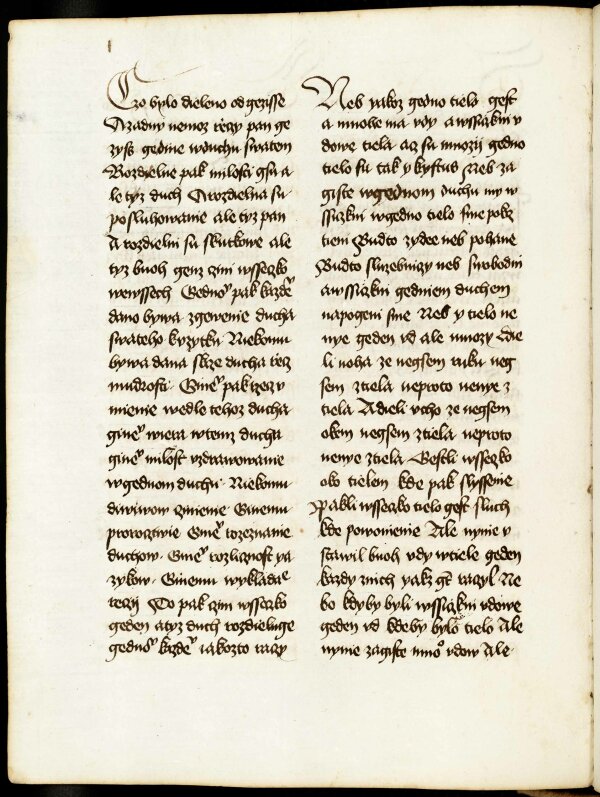 Czo bylo dieleno od gezisse
A zadny nemoz rzeczy pan ge
zyss gedine w duchu swatem
Rozdielne pak milosti gsu a
le tyz duch A rozdielna su
posluhowanie ale tyz pan
A rozdielni su skutkowe ale
tyz buoh genz czini wsseczko
wewssech Gednoᵘ pak kazdeᵘ
dano bywa zgewenie ducha
swateho k uzytku Niekomu
bywa dana skrze ducha rzecz
mudrosti Gineᵘ pak rzecz v
mienie wedle tehoz ducha
gineᵘ wiera w temz duchu
gineᵘ milost vzdrawowanie
w gednom duchu Niekomu
diwuow czinienie Ginemu
proroctwie Gineᵘ rozeznanie
duchow Gineᵘ rozlicznost ya
zykow Ginemu wykladaᵉ
rzeczij To pak czini wsseczko
geden a tyz duch rozdieluge
gednoᵘ kazdeᵘ iakozto raczy
Neb yakoz gedno tielo gest
a mnohe ma vdy a wssiczkni v
dowe tiela acz su mnozij gedno
tielo su tak y kristus Neb za
giste w gednom duchu my w
ssiczkni w gedno tielo sme pokrz
tieni Budto zydee neb pohane
Budto sluzebniczy neb swobodni
a wssiczkni gedniem duchem
napogeni sme Neb y tielo ne
nye geden vd ale mnozy Die
li noha ze negsem ruku neg
sem z tiela neproto nenye z
tiela A dieli vcho ze negsem
okem negsem z tiela neproto
nenye z tiela Gestli wsseczko
oko tielem kde pak slyssenie
Pakli wsseczko tielo gest sluch
kde powonienie Ale nynie v
stawil buoh vdy w tiele geden
kazdy z nich yakz gt raczyl Ne
bo kdyby byli wssiczkni vdowe
geden vd kde by bylo tielo Ale
nynie zagiste mnoᵒ vdow Ale